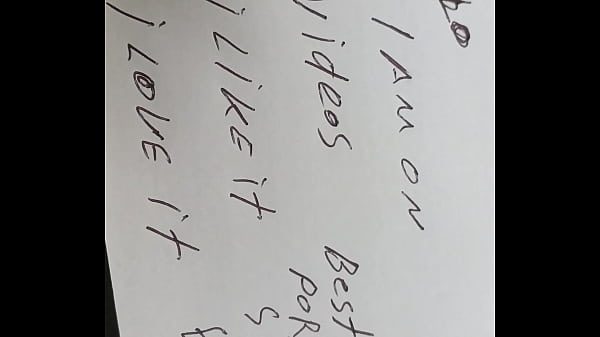 I AM ON
Videos Best
POR
i LIKE it S
i LOVE it